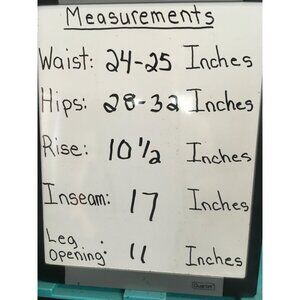 Measurements
Waist: 24-25 Inches
Hips: 28-32 Inches
Rise: 10 1/2 Inches
Inseam: 17 Inches
Leg
Opening: 11 Inches
Quartet